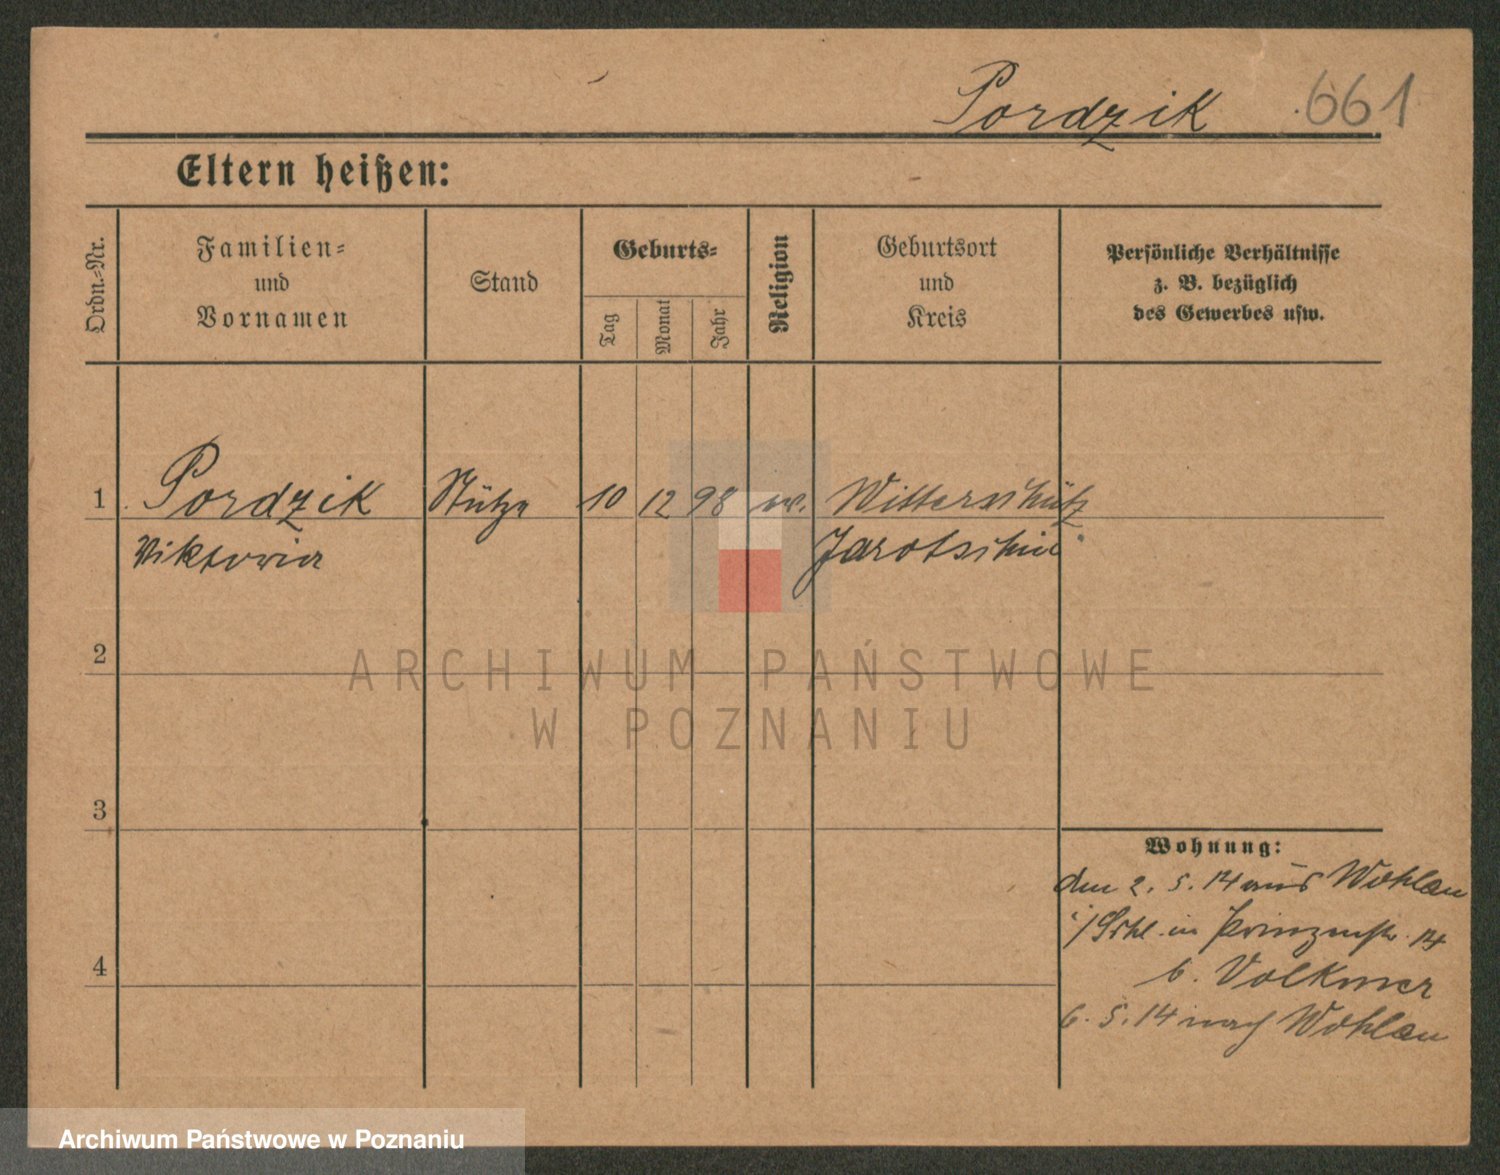 Pordzik 661
Eltern heißen:
Ordn.-Nr.
Familien-
und
Vornamen
Stand
Geburts-
Tag
Monat
Jahr
Religion
Geburtsort
und
Kreis
Persönliche Verhältnisse
z. B. bezüglich
des Gewerbes usw.
1 Pordzik Stütze 10 12 98 Witterschütz
Viktoria Jarotschin
2
3
4
Wohnung:
den 2. 5. 14 aus Wohlau
i/Schl. in Prinzenstr. 14
b. Volkmer
6. 5. 14 nach Wohlau
ARCHIWUM PAŃSTWOWE
W POZNANIU
Archiwum Państwowe w Poznaniu